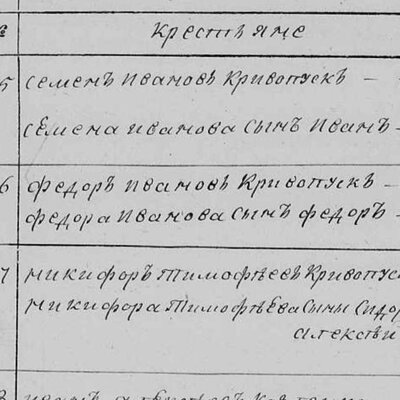 Крестьяне
5 Семенъ Ивановъ Кривопускъ —
Семена Иванова сынъ Иванъ -
6 Федоръ Ивановъ Кривопускъ -
Федора Иванова сынъ Федоръ -
7 Никифоръ Тимофѣевъ Кривопус
Никифора Тимофѣева сыны Сидор
Алексѣи